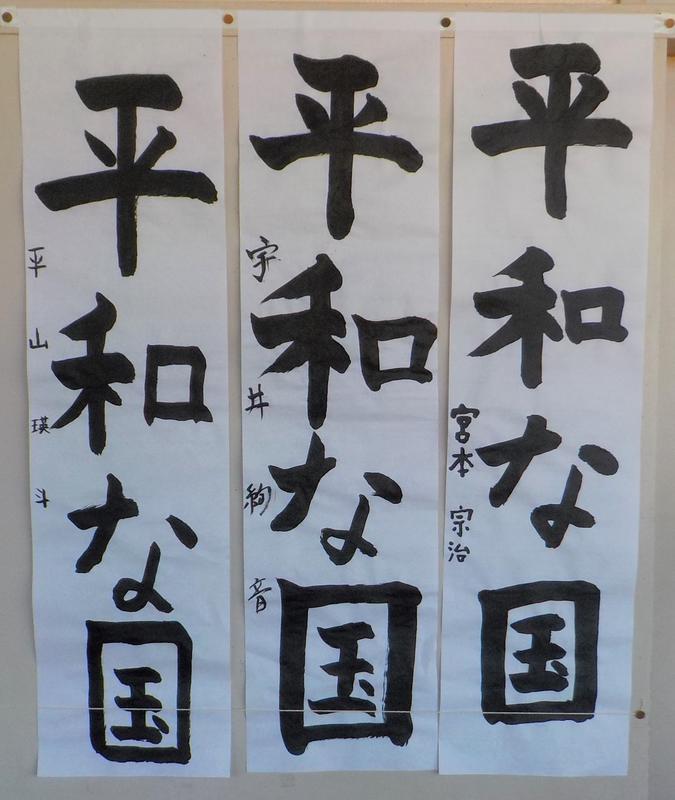 平和な国
宮本宗治
平和な国
宇井絢音
平和な国
平山瑛斗